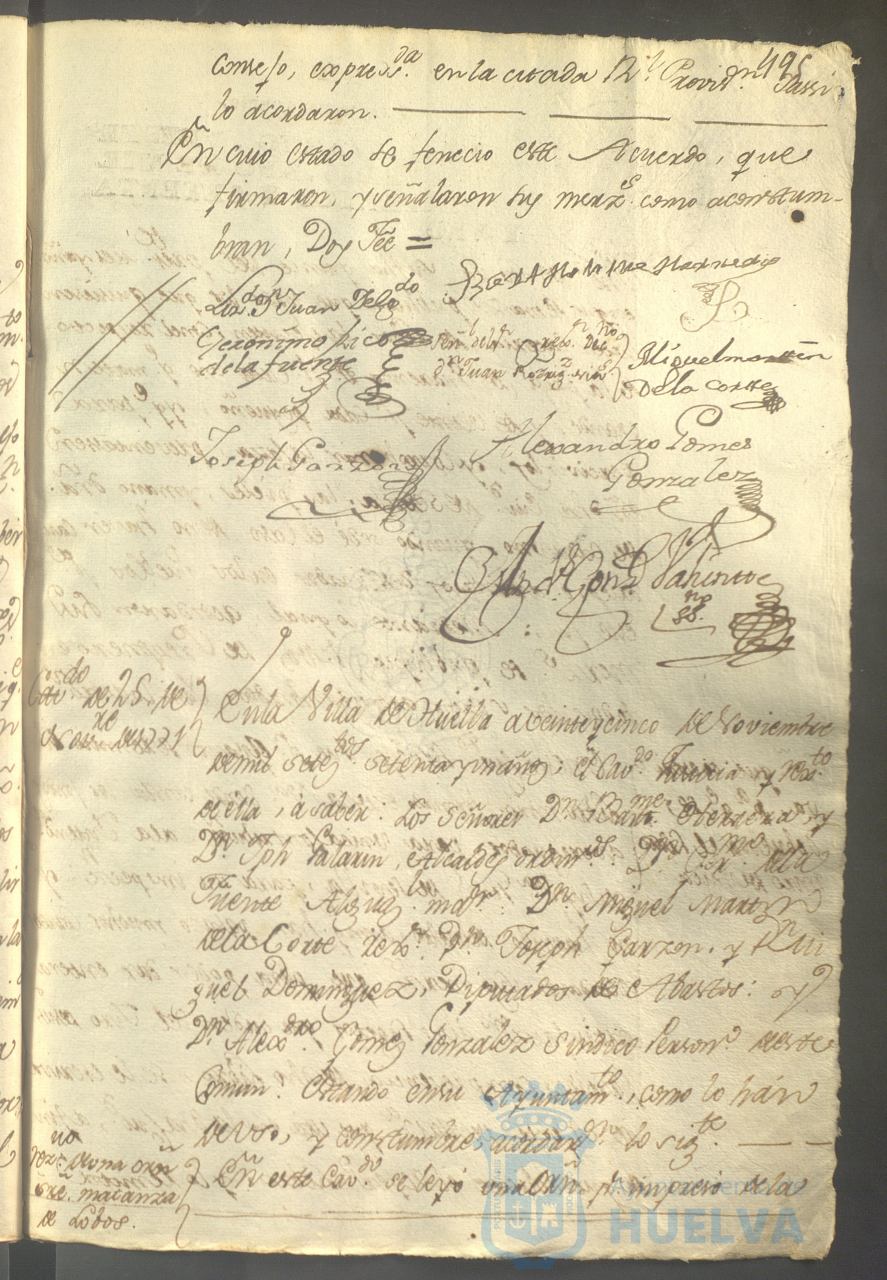 495
Consejo, expres.da en la citada R.l Provid.n Yassi
lo acordaron.
En cuio estado se fenecio este Acuerdo, que
firmaron, y señalaron sus merz.s como acostum-
bran, Doy Fee =
Liz.do D.n Juan Delg.do
Bartholome Herrera
Geronimo Lico
de la fuente
Señal del S.r rex.r
d.n Juan Rodrig.z
Miguel martin
De la Corte
Joseph Garzon
Alexandro Gomes
Gonzalez
Valiente
ss.no
Cav.do de 25. de
Nov.re de 1771
En la Villa de Huelva a veinte y cinco de Noviembre
de mil setez.tos setenta y un años; el Cav.do Justicia y rex.to
de ella, a saber: Los Señores D.n Bar.me Herrera, y
D.n Jph Palarin, Alcaldes ordin.s D.n Ger.mo de la
Fuente Alguaz.l ma.r D.n Miguel Martin
de la Corte rex.r D.n Joseph Garzon, y D.n Mi
guel Dominguez, Diputados de Abastos: y
D.n Alex.dro Gomez Gonzalez Sindico Person.o de este
Comun. Estando en su Ayuntam.to, como lo hán
de uso, y constumbre, acordar.n lo sig.te
de una orn
sre. matanza
de Lobos.
En este Cav.do se leyó una Orñ. impresa de la
Ayuntamiento de
HUELVA